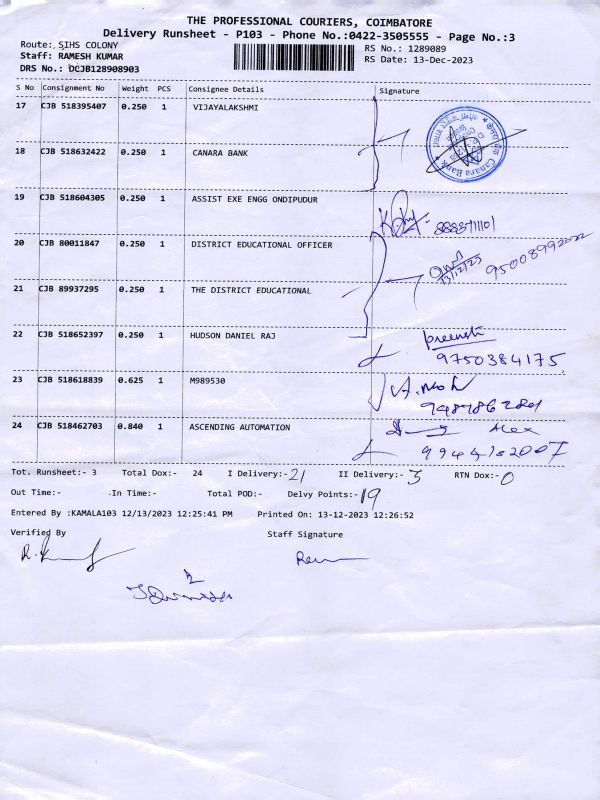 THE PROFESSIONAL COURIERS, COIMBATORE
Delivery Runsheet - P103 - Phone No.:0422-3505555 - Page No.:3
Route: SIHS COLONY RS No.: 1289089
Staff: RAMESH KUMAR RS Date: 13-Dec-2023
DRS No.: DCJB128908903
S No Consignment No Weight PCS Consignee Details Signature
17 CJB 518395407 0.250 1 VIJAYALAKSHMI
18 CJB 518632422 0.250 1 CANARA BANK
Canara Bank
19 CJB 518604305 0.250 1 ASSIST EXE ENGG ONDIPUDUR
20 CJB 80011847 0.250 1 DISTRICT EDUCATIONAL OFFICER
13/12/23
21 CJB 89937295 0.250 1 THE DISTRICT EDUCATIONAL
22 CJB 518652397 0.250 1 HUDSON DANIEL RAJ
9750384175
23 CJB 518618839 0.625 1 M989530
24 CJB 518462703 0.840 1 ASCENDING AUTOMATION Alex
Tot. Runsheet:- 3 Total Dox:- 24 I Delivery:-21 II Delivery:- 3 RTN Dox:-0
Out Time:- .In Time:- Total POD:- Delvy Points:-19
Entered By :KAMALA103 12/13/2023 12:25:41 PM Printed On: 13-12-2023 12:26:52
Verified By Staff Signature